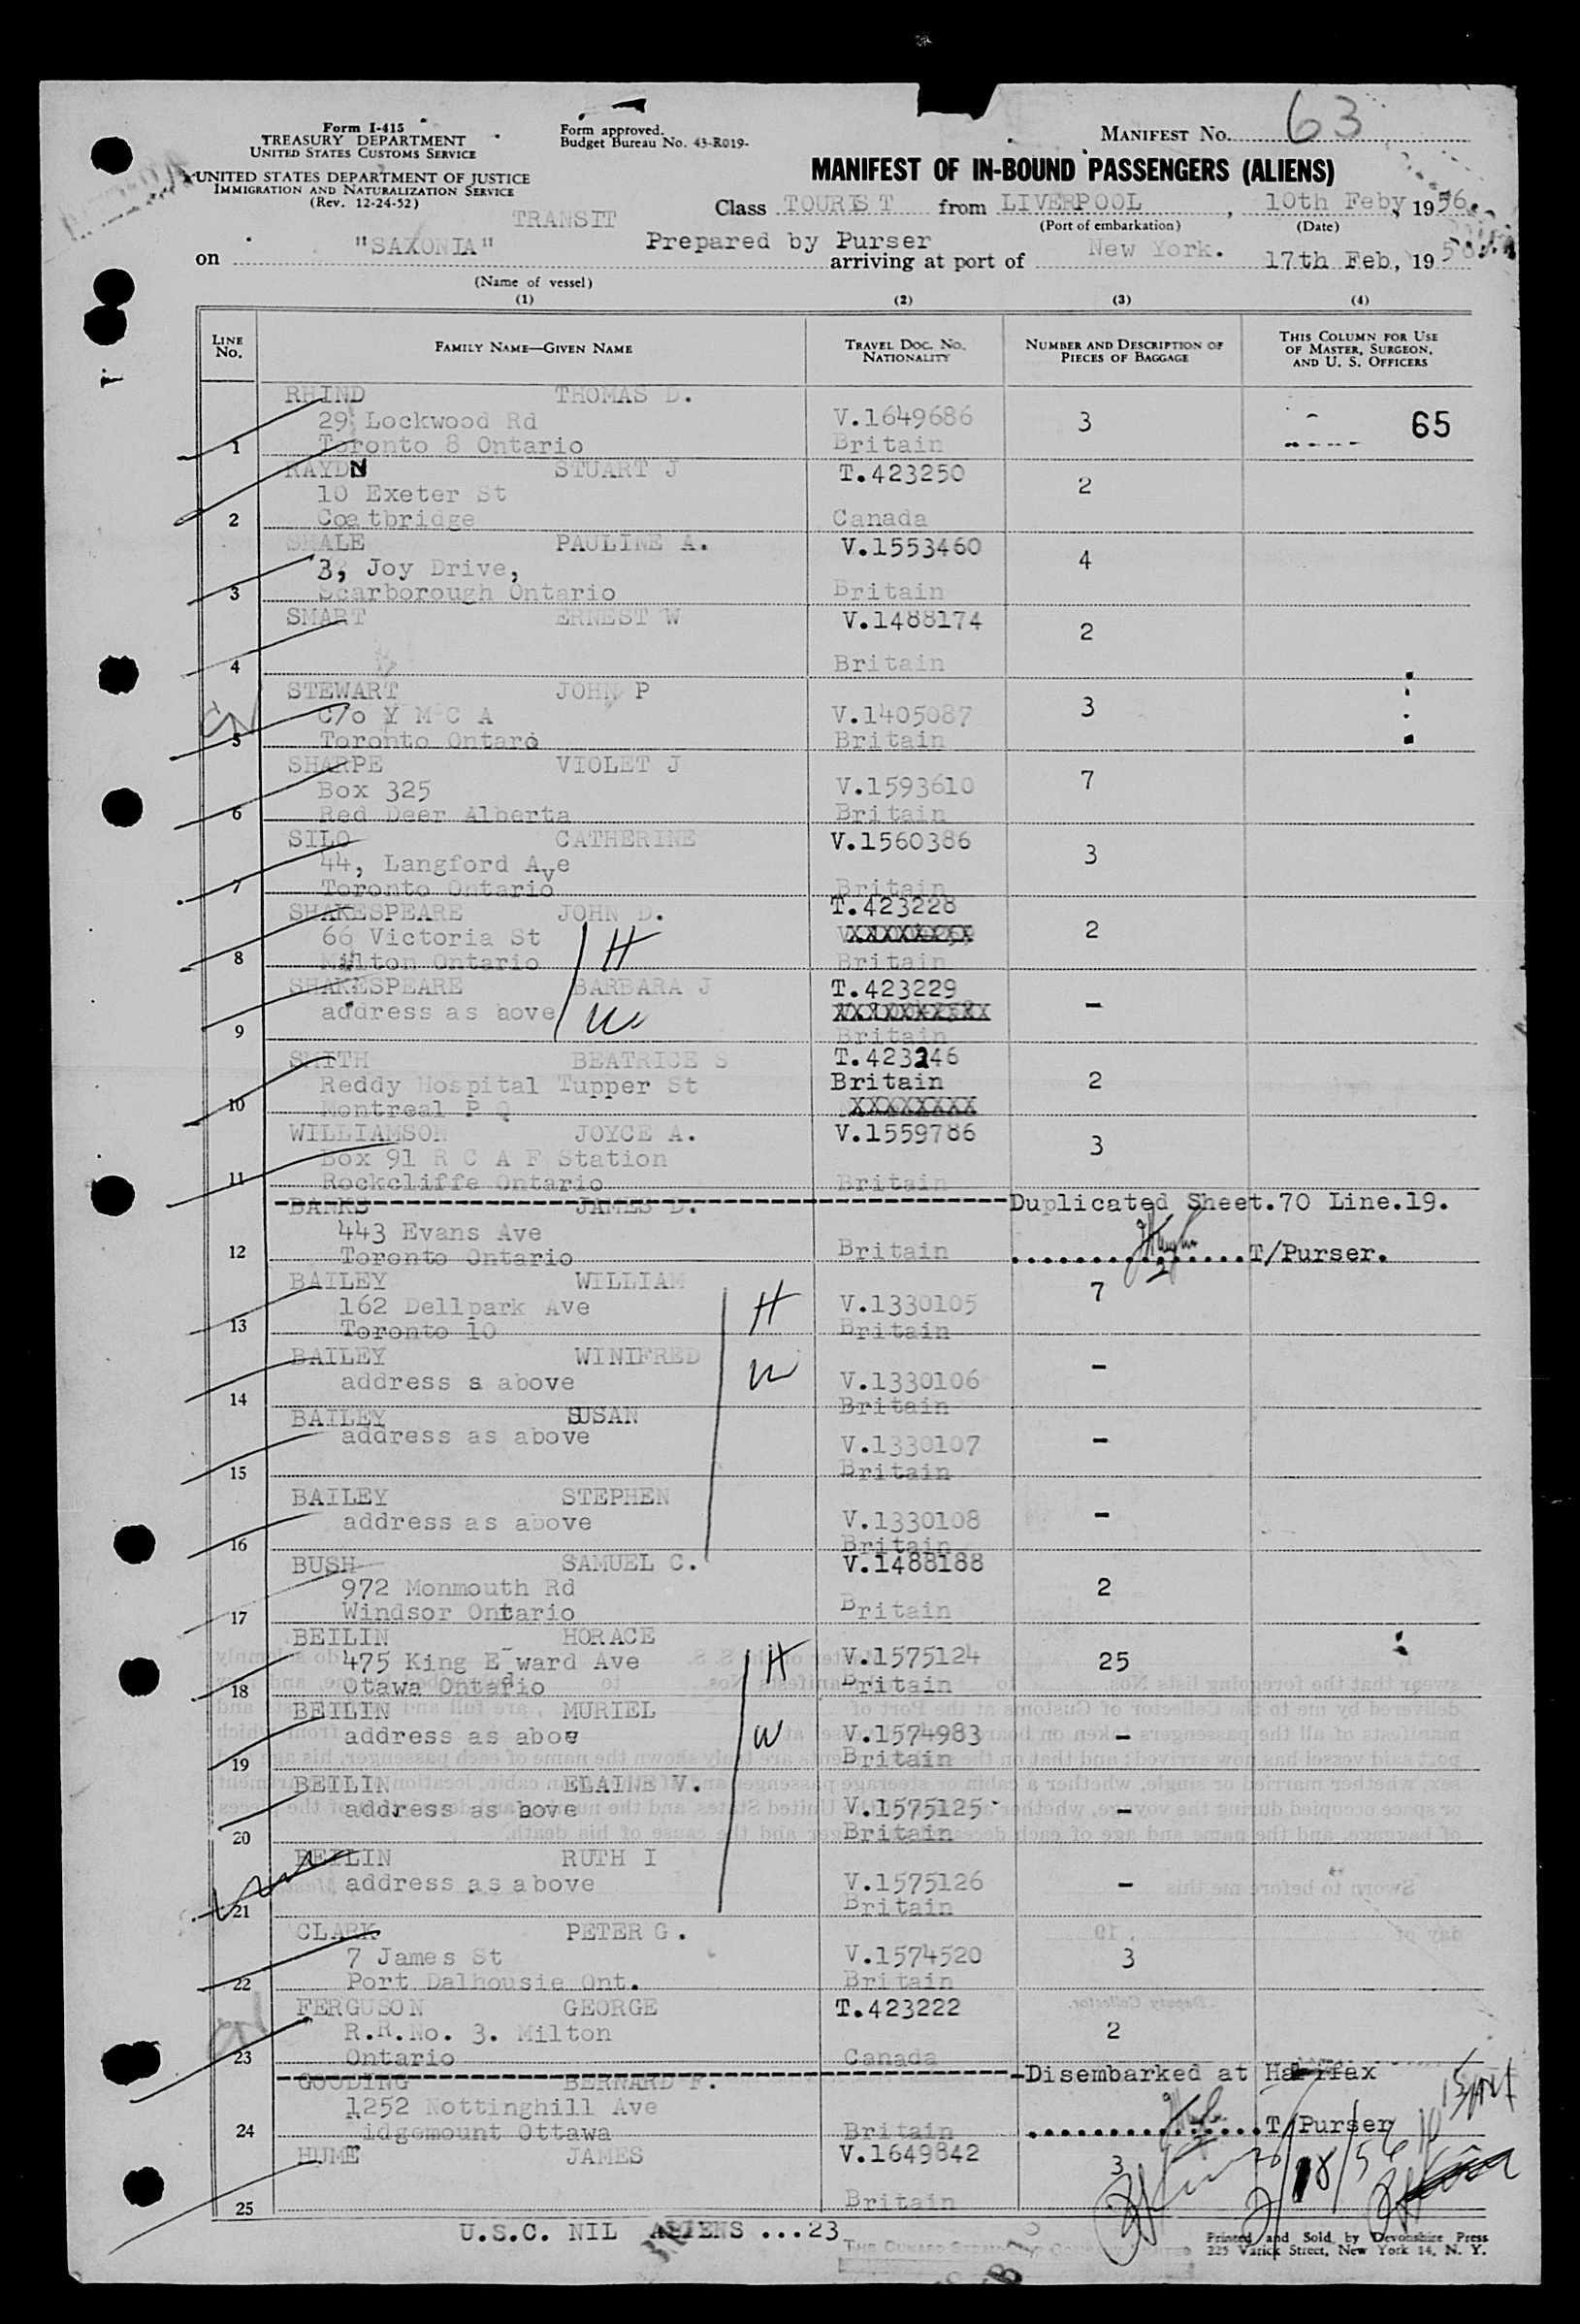 Form I-415
TREASURY DEPARTMENT
UNITED STATES CUSTOMS SERVICE
UNITED STATES DEPARTMENT OF JUSTICE
IMMIGRATION AND NATURALIZATION SERVICE
(Rev. 12-24-52)
Form approved.
Budget Bureau No. 43-R019-
MANIFEST No. 63
MANIFEST OF IN-BOUND PASSENGERS (ALIENS)
TRANSIT
Class TOURIST from LIVERPOOL, 10th Feby, 1956.
(Port of embarkation) (Date)
Prepared by Purser
on "SAXONIA" arriving at port of New York. 17th Feb, 195
(Name of vessel)
(1) (2) (3) (4)
LINE No. FAMILY NAME—GIVEN NAME TRAVEL DOC. No. NATIONALITY NUMBER AND DESCRIPTION OF PIECES OF BAGGAGE THIS COLUMN FOR USE OF MASTER, SURGEON, AND U. S. OFFICERS
RHIND THOMAS D.
29 Lockwood Rd V.1649686 3 65
1 Toronto 8 Ontario Britain
RAYDN STUART J T.423250
10 Exeter St 2
2 Coatbridge Canada
SHALE PAULINE A. V.1553460
3, Joy Drive, 4
3 Scarborough Ontario Britain
SMART ERNEST W V.1488174
2
4 Britain
STEWART JOHN P
C/o Y M C A V.1405087 3
5 Toronto Ontaro Britain
SHARPE VIOLET J
Box 325 V.1593610 7
6 Red Deer Alberta Britain
SILO CATHERINE V.1560386
44, Langford Ave 3
7 Toronto Ontario Britain
SHAKESPEARE JOHN D. T.423228
66 Victoria St H XXXXXXXX 2
8 Milton Ontario Britain
SHAKESPEARE BARBARA J T.423229
address as aove W XXXXXXXXXX -
9 Britain
SMITH BEATRICE S T.423246
Reddy Hospital Tupper St Britain 2
10 Montreal P Q XXXXXXXX
WILLIAMSON JOYCE A. V.1559786
Box 91 R C A F Station 3
11 Rockcliffe Ontario Britain
BANKS JAMES D. Duplicated Sheet.70 Line.19.
443 Evans Ave
12 Toronto Ontario Britain T/Purser.
BAILEY WILLIAM 7
162 Dellpark Ave H V.1330105
13 Toronto 10 Britain
BAILEY WINIFRED -
address s above W V.1330106
14 Britain
BAILEY SUSAN
address as above V.1330107 -
15 Britain
BAILEY STEPHEN
address as above V.1330108 -
16 Britain
BUSH SAMUEL C. V.1488188
972 Monmouth Rd 2
17 Windsor Ontario Britain
BEILIN HORACE
475 King E ward Ave H V.1575124 25
18 Otawa Ontario Britain
BEILIN MURIEL
address as above W V.1574983 -
19 Britain
BEILIN ELAINE V.
address as aove V.1575125 -
20 Britain
BEILIN RUTH I
address as above V.1575126 -
21 Britain
CLARK PETER G.
7 James St V.1574520 3
22 Port Dalhousie Ont. Britain
FERGUSON GEORGE T.423222
R.R.No. 3. Milton 2
23 Ontario Canada
GOODING BERNARD F. Disembarked at Halifax
1252 Nottinghill Ave
24 idgemount Ottawa Britain T/Purser
HUME JAMES V.1649842 3
25 Britain
U.S.C. NIL ALIENS ...23
Printed and Sold by Devonshire Press
225 Varick Street, New York 14, N. Y.